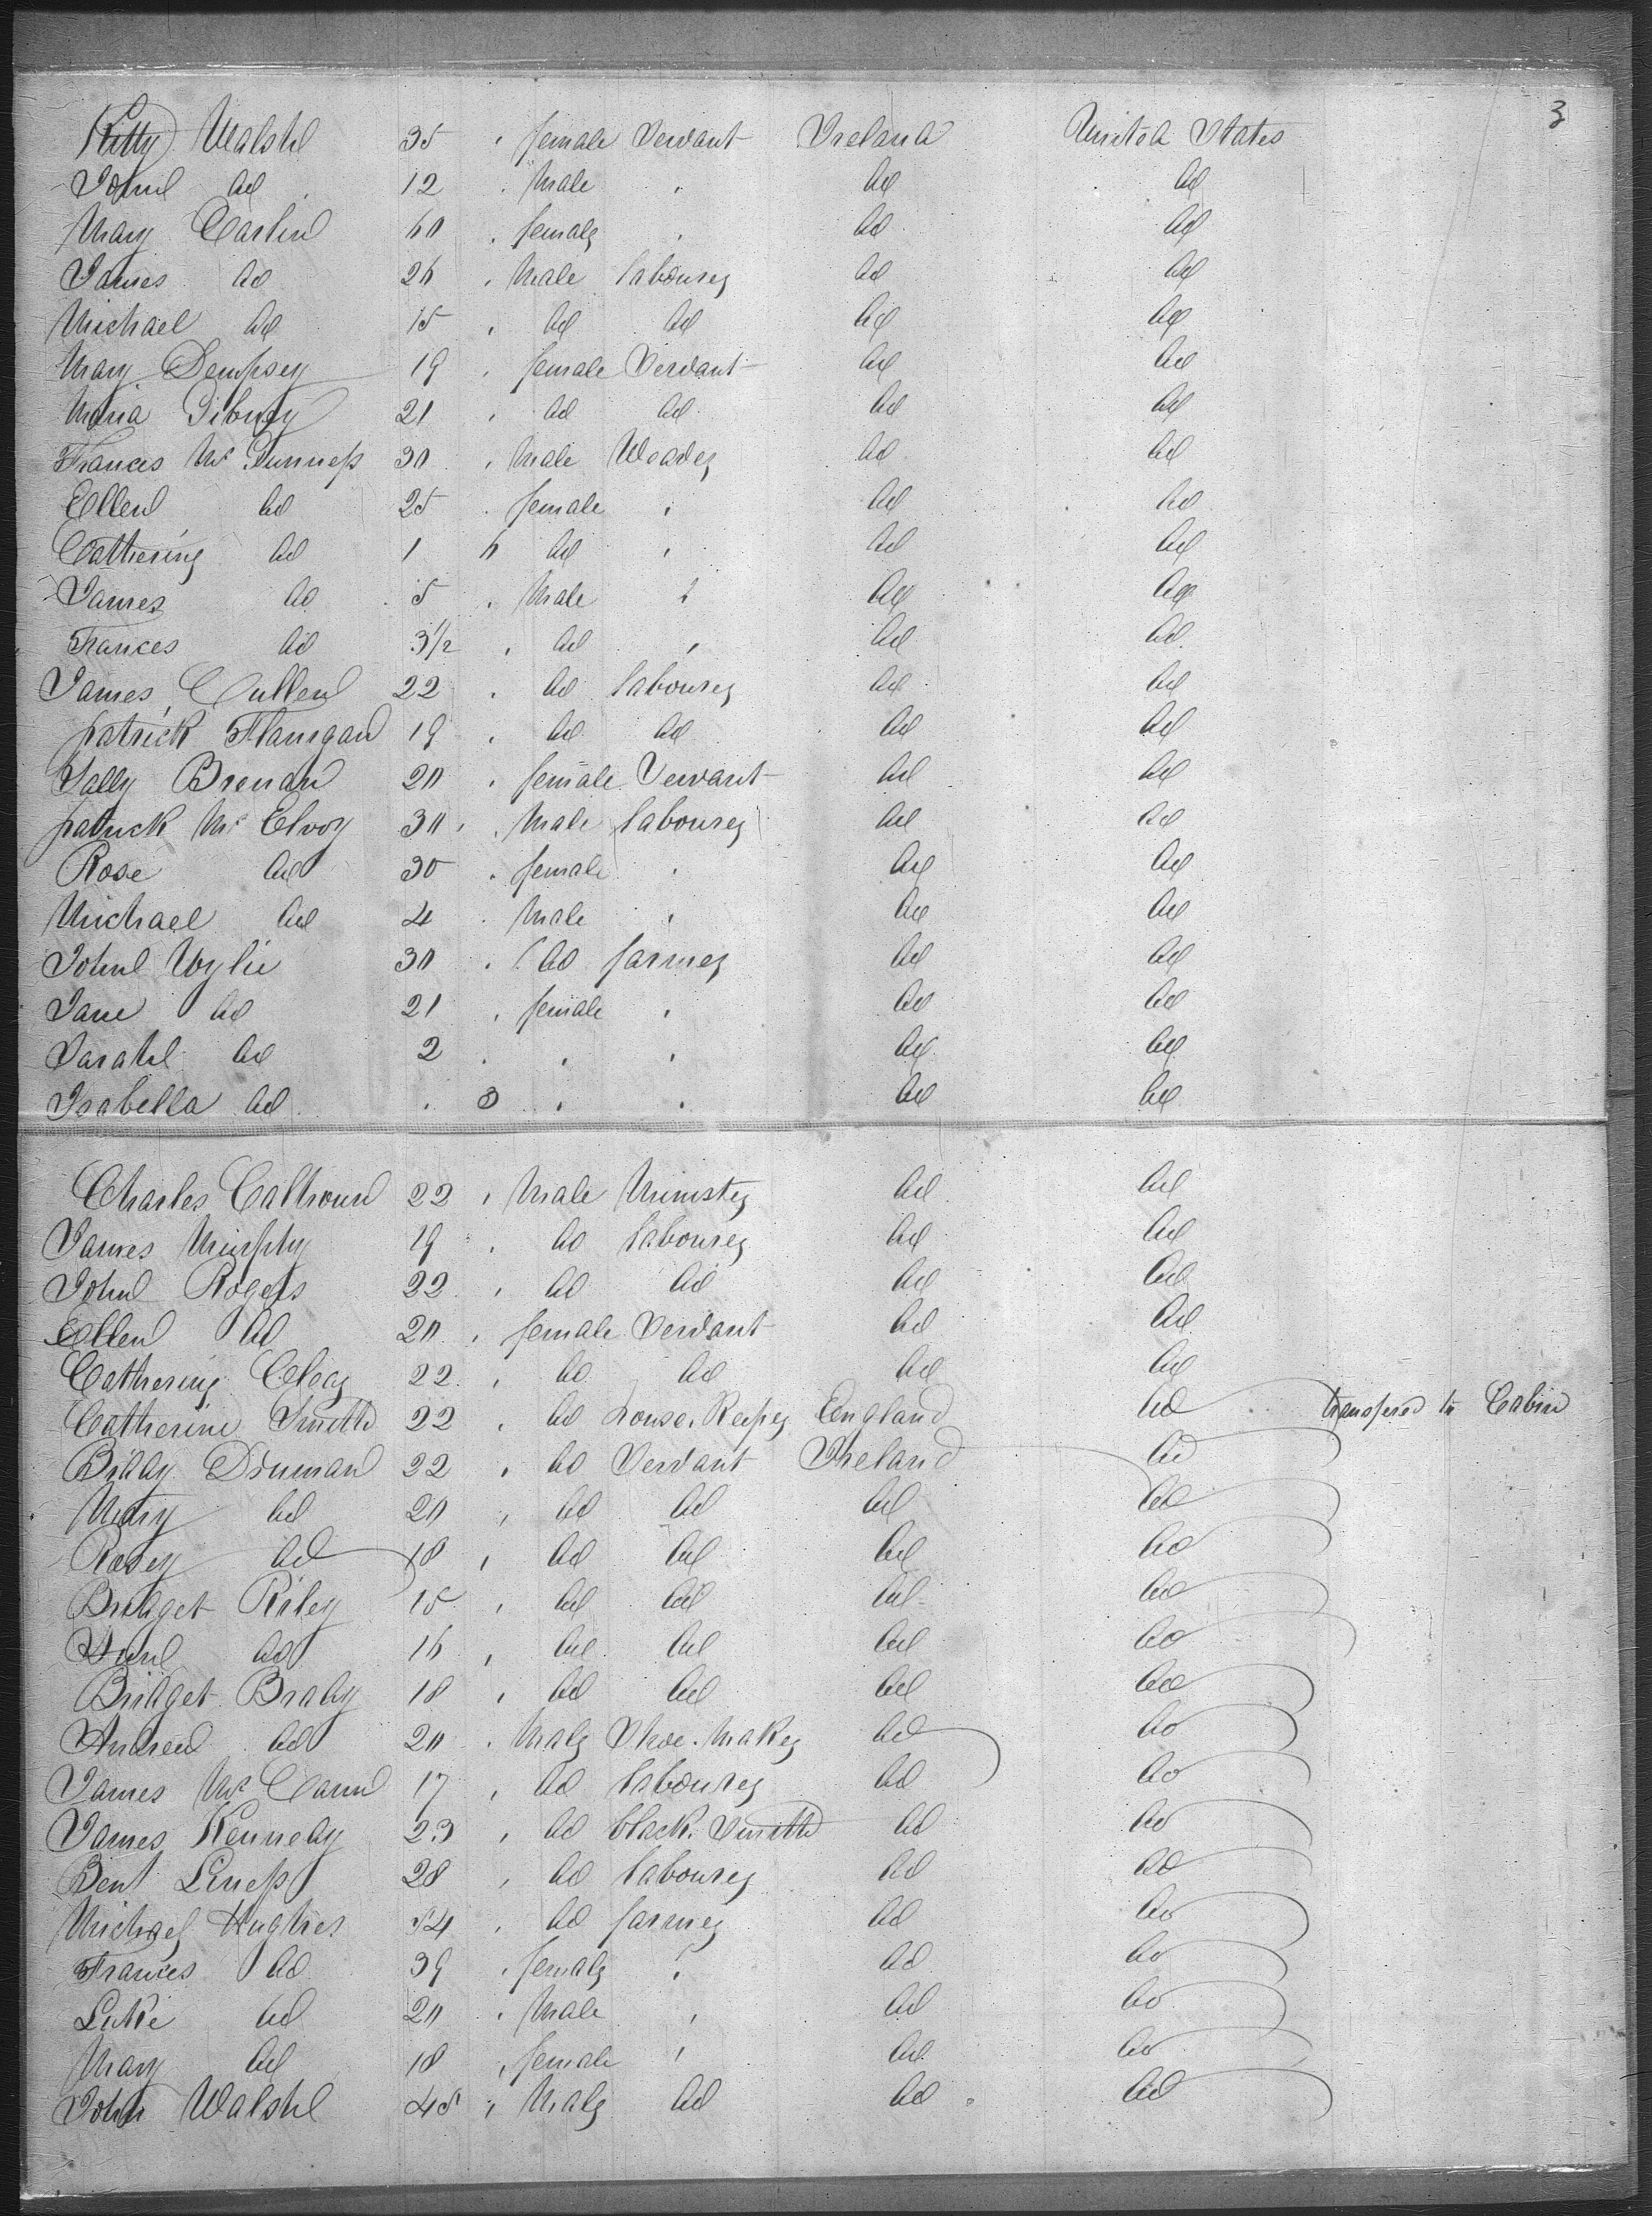 3
Kitty Walsh 35 " female Servant Ireland United States
John do 12 " Male " do do
Mary Carlin 60 " female " do do
James do 26 " Male labourer do do
Michael do 15 " do do do do
Mary Dempsey 19 " female Servant do do
Maria Gibney 21 " do do do do
Frances Mc Gunness 30 " Male Weaver do do
Ellen do 25 " female " do do
Catherine do 1 6 do " do do
James do 5 " Male " do do
Frances do 3½ " do " do do
James Cullen 22 " do labourer do do
patrick Flanigan 19 " do do do do
Sally Brenan 20 " female Servant do do
patrick Mc Elvoy 30 " Male labourer do do
Rose do 30 " female " do do
Michael do 4 " Male " do do
John Wylie 30 " do farmer do do
Jane do 21 " female " do do
Sarah do 2 " " " do do
Isabella do " 3 " " do do
Charles Calhoun 22 " Male Minister do do
James Murphy 19 " do labourer do do
John Rogers 22 " do do do do
Ellen do 20 " female Servant do do
Catherine 22 " do do do do
Catherine Smith 22 " do House Keeper England do transfered to Cabin
Biddy Druman 22 " do Servant Ireland do
Mary do 20 " do do do do
Rosey do 18 " do do do do
Bridget Riley 15 " do do do do
do 16 " do do do do
Bridget Brady 18 " do do do do
Andrew do 20 " Male Shoe Maker do do
James Mc Cann 17 " do labourer do do
James Kennedy 23 " do black Smith do do
Bent Liness 28 " do labourer do do
Michael Hughes 54 " do farmer do do
Frances do 39 " female " do do
Luke do 20 " Male " do do
Mary do 18 " female " do do
John Walsh 45 " Male do do do